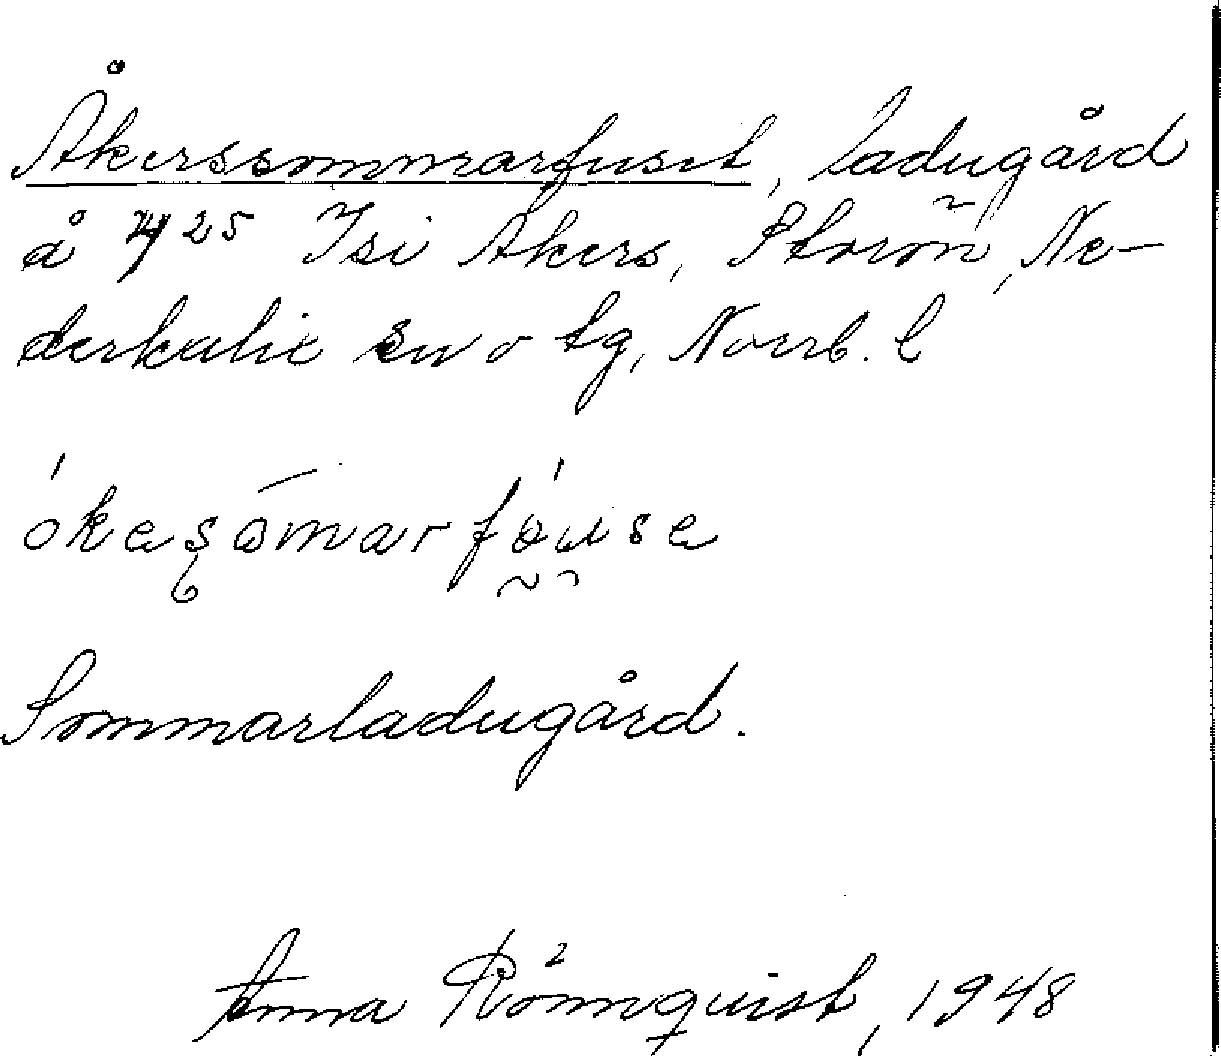 Åkerssommarfuset, ladugård
å 4/25 Isi Åkers, Storön, Ne-
derkalix sn o tg, Norrb. l
Sommarladugård.
Anna Rönnquist, 1948